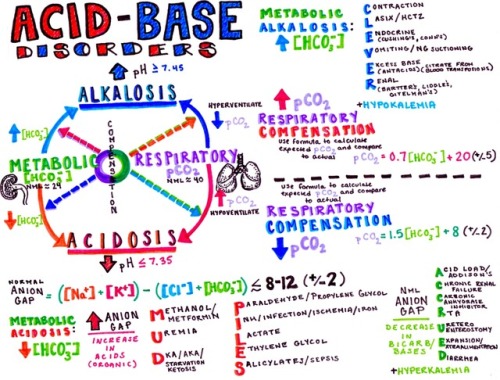 ACID-BASE
DISORDERS
pH ≥ 7.45
ALKALOSIS
↑ [HCO3-]
HYPERVENTILATE
↓ pCO2
COMPENSATION
METABOLIC
[HCO3-]
NML ≈ 24
RESPIRATORY
pCO2
NML ≈ 40
↓ [HCO3-]
↑ pCO2
HYPOVENTILATE
ACIDOSIS
pH ≤ 7.35
METABOLIC
ALKALOSIS:
↑ [HCO3-]
CONTRACTION
LASIX/HCTZ
ENDOCRINE
(CUSHING'S, CONN'S)
VOMITING/NG SUCTIONING
EXCESS BASE
(ANTACIDS)(CITRATE FROM BLOOD TRANSFUSIONS)
RENAL
(BARTTER'S, LIDDLE'S, GITELMAN'S)
+HYPOKALEMIA
↑ pCO2
RESPIRATORY
COMPENSATION
USE FORMULA TO CALCULATE
EXPECTED pCO2 AND COMPARE
TO ACTUAL
pCO2 = 0.7[HCO3-] + 20 (+/- 5)
USE FORMULA TO CALCULATE
EXPECTED pCO2 AND COMPARE
TO ACTUAL
RESPIRATORY
COMPENSATION
↓ pCO2
pCO2 = 1.5[HCO3-] + 8 (+/- 2)
NORMAL
ANION
GAP = ([Na+]+[K+]) - ([Cl-]+[HCO3-]) ≤ 8-12 (+/- 2)
METABOLIC
ACIDOSIS:
↓ [HCO3-]
↑ ANION
GAP
INCREASE
IN ACIDS
(ORGANIC)
METHANOL/
METFORMIN
UREMIA
DKA/AKA/
STARVATION
KETOSIS
PARALDEHYDE/PROPYLENE GLYCOL
INH/INFECTION/ISCHEMIA/IRON
LACTATE
ETHYLENE GLYCOL
SALICYLATES/SEPSIS
NML
ANION
GAP
DECREASE
IN BICARB/
BASES
ACID LOAD/
ADDISON'S
CHRONIC RENAL
FAILURE
CARBONIC
ANHYDRASE
INHIBITOR
RTA
URETERO
ENTEROSTOMY
EXPANSION/
EXTRAALIMENTATION
DIARRHEA
+HYPERKALEMIA